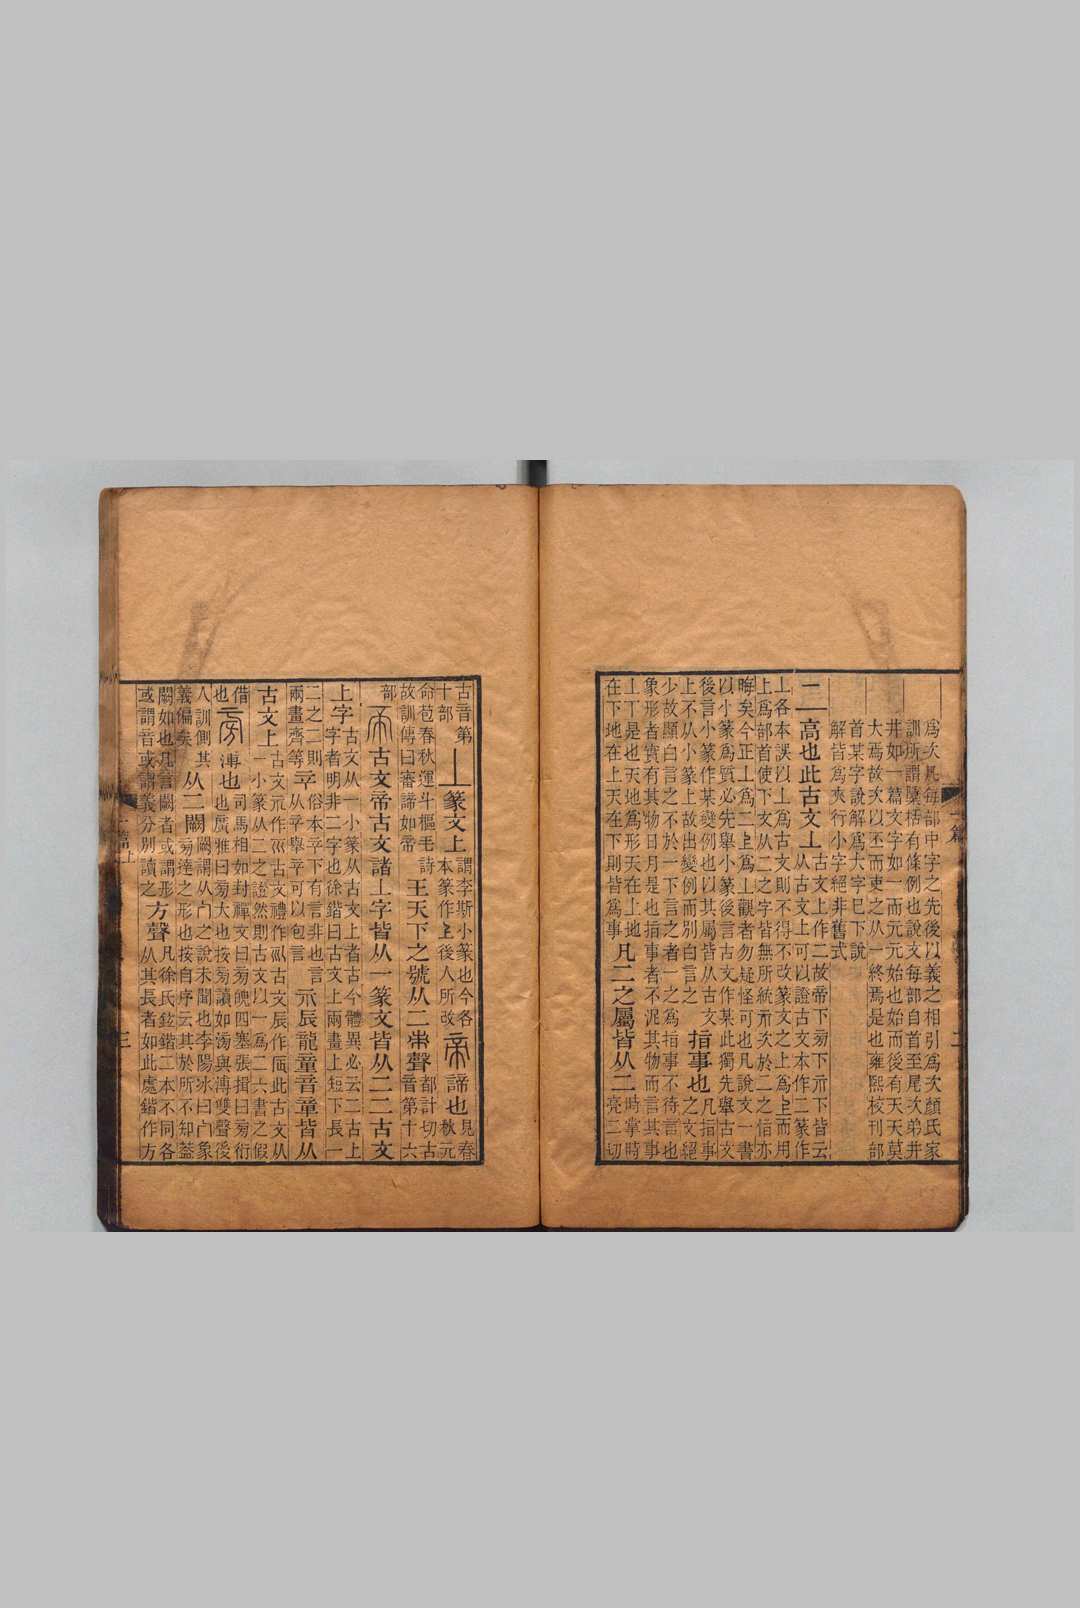 爲次凡每部中字之先後以義之相引爲次顏氏家
訓所謂檃栝有條例也說文每部自首至尾次弟井
井如一篇文字如一而元元始也始而後有天天莫
大焉故次以丕而吏之从一終焉是也雍熙校刊部
首某字說解爲大字巳下說
解皆爲夾行小字絕非舊式
二高也此古文丄古文上作二故帝下㫄下示下皆云
从古文上可以證古文本作二篆作
丄各本誤以丄爲古文則不得不改篆文之上爲𠄞而用
上爲部首使下文从二之字皆無所統示次於二之恉亦
晦矣今正丄爲二𠄞爲丄觀者勿疑怪可也凡說文一書
以小篆爲質必先舉小篆後言古文作某此獨先舉古文
後言小篆作某變例也以其屬皆从古文
上不从小篆上故出變例而別白言之指事也凡指事
之文絕
少故顯白言之不於一下言之者一之爲指事不待言也
象形者實有其物日月是也指事者不泥其物而言其事
丄丅是也天地爲形天在上地
在下地在上天在下則皆爲事凡二之屬皆从二時掌
時
亮二切
一篇
二
古音第
十部丄篆文上謂李斯小篆也今各
本篆作𠄞後人所改帝諦也見春
秋元
命苞春秋運斗樞毛詩
故訓傳曰審諦如帝王天下之號从二朿聲都計切古
音第十六
部古文帝古文諸丄字皆从一篆文皆从二二古文
上字古文从一小篆从古文上者古今體異必云二古上
字者明非二字也徐鍇曰古文上兩畫上短下長一
二之二則
兩畫齊等䇂俗本䇂下有言非也言
从䇂舉䇂可以包言示辰龍童音章皆从
古文上古文示作𥘆古文禮作𠃞古文辰作𠨷此古文从
一小篆从二之證然則古文以一爲二六書之假
借
也㫄溥也司馬相如封禪文曰㫄魄四塞張揖曰㫄衍
也廣雅曰㫄大也按㫄讀如滂與溥雙聲後
人訓側其
義偏矣从二闕闕謂从冂之說未聞也李陽冰曰冂象
㫄達之形也按自序云其於所不知葢
闕如也凡言闕者或謂形
或謂音或謂義分別讀之方聲凡徐氏鉉鍇二本不同各
从其長者如此處鍇作方
一篇上
三